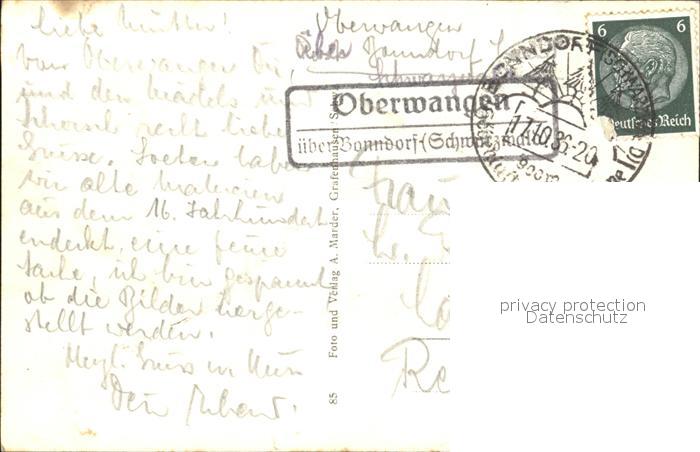 Liebe Mutter!
von Oberwangen Dir,
und den Mädels und
recht liebe
Grüsse. Soeben haben
wir alte Malereien
aus dem 16. Jahrhundert
endeckt, eine feine
Sache, ich bin gespannt
ob die Bilder herge-
stellt werden.
Herzl. Gruss u. Kuss
Dein
Oberwangen
über Bonndorf
Schwarzwald
Oberwangen
über Bonndorf (Schwarzwald)
BONNDORF SCHWARZWALD
17.10.36-20
800m
6 6
Deutsches Reich
Frau
85 Foto und Verlag A. Marder, Grafenhausen
privacy protection
Datenschutz